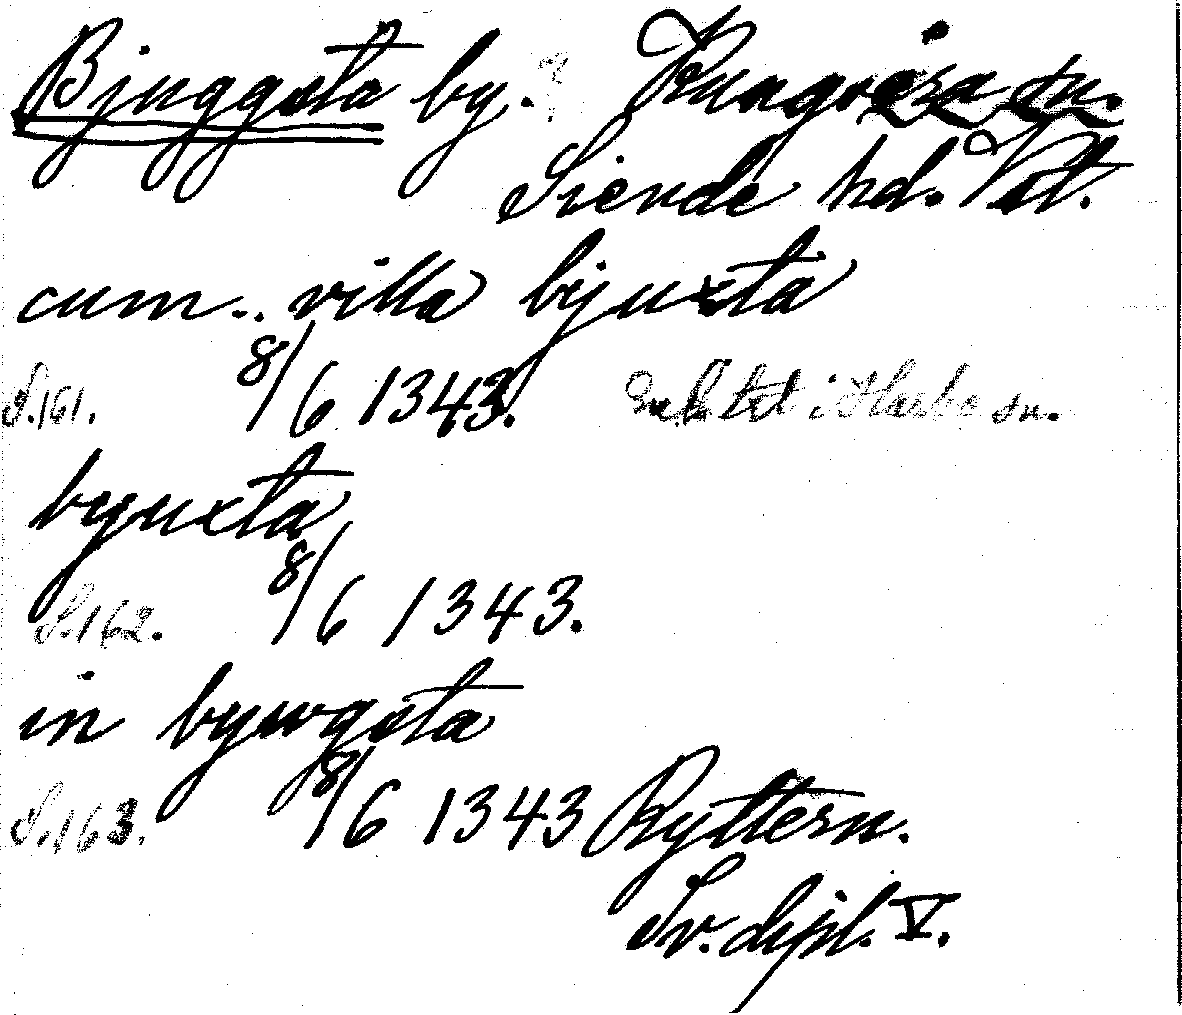 Bjuggsta by. ? Kungsåra sn.
Siende hd. Vstl.
cum .. villa bijuxta
S. 161. 8/6 1343. i Harbo sn.
byuxta
S. 162. 8/6 1343.
in bywgsta
S. 163. 8/6 1343 Ryttern.
Sv. dipl. V.